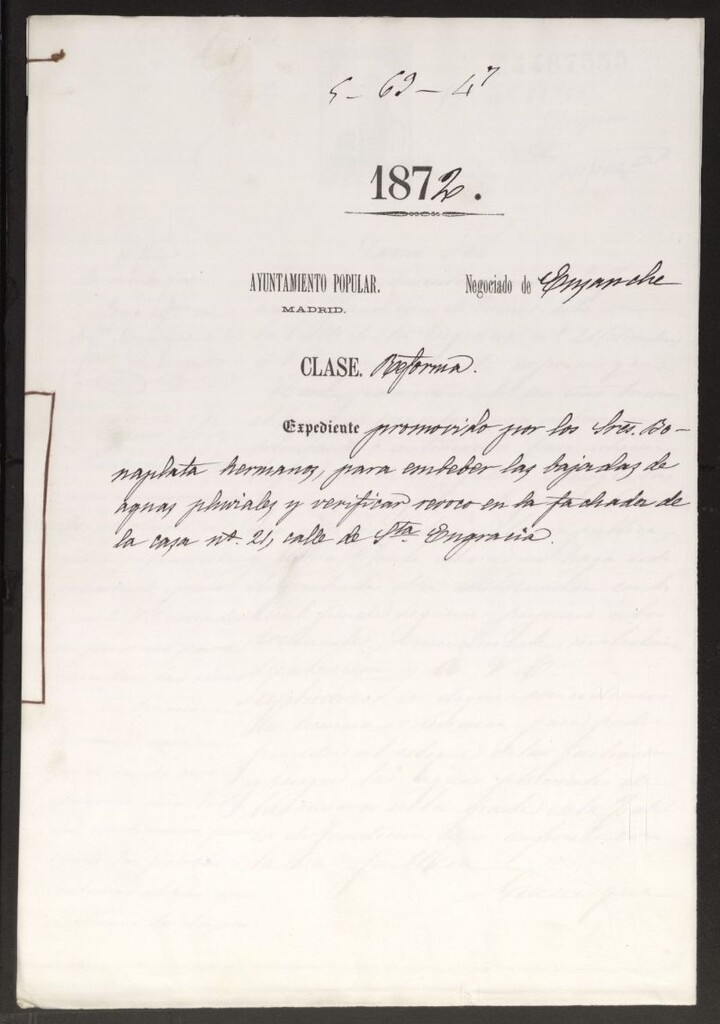 5-69-47
1872.
AYUNTAMIENTO POPULAR. Negociado de Ensanche
MADRID.
CLASE. Reforma.
Expediente promovido por los Sres. Bo-
naplata hermanos, para embeber las bajadas de
aguas pluviales y verificar revoco en la fachada de
la casa nº. 21, calle de Sta Engracia.